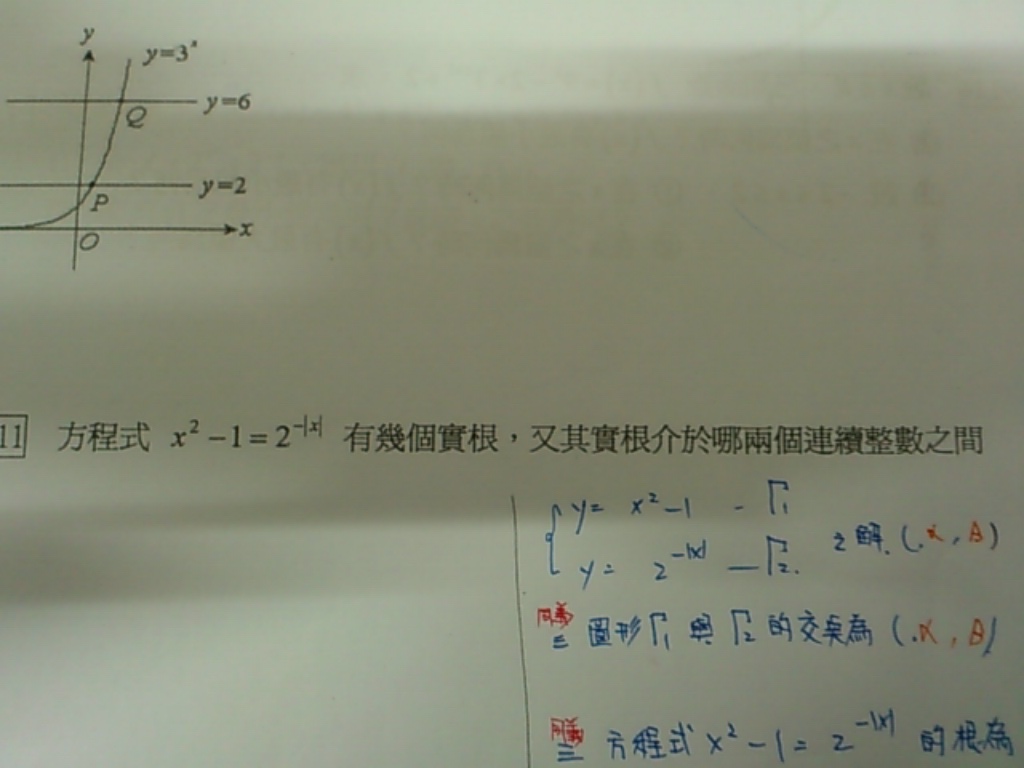 y
y=3ˣ
y=6
Q
y=2
P
x
O
11 方程式 x²−1=2^{-|x|} 有幾個實根，又其實根介於哪兩個連續整數之間
y= x²−1 − Γ₁
y= 2^{-|x|} — Γ₂. 之解.(α,β)
同義
≡ 圖形Γ₁ 與 Γ₂ 的交點為 (α,β)
同義
≡ 方程式 x²−1= 2^{-|x|} 的根為